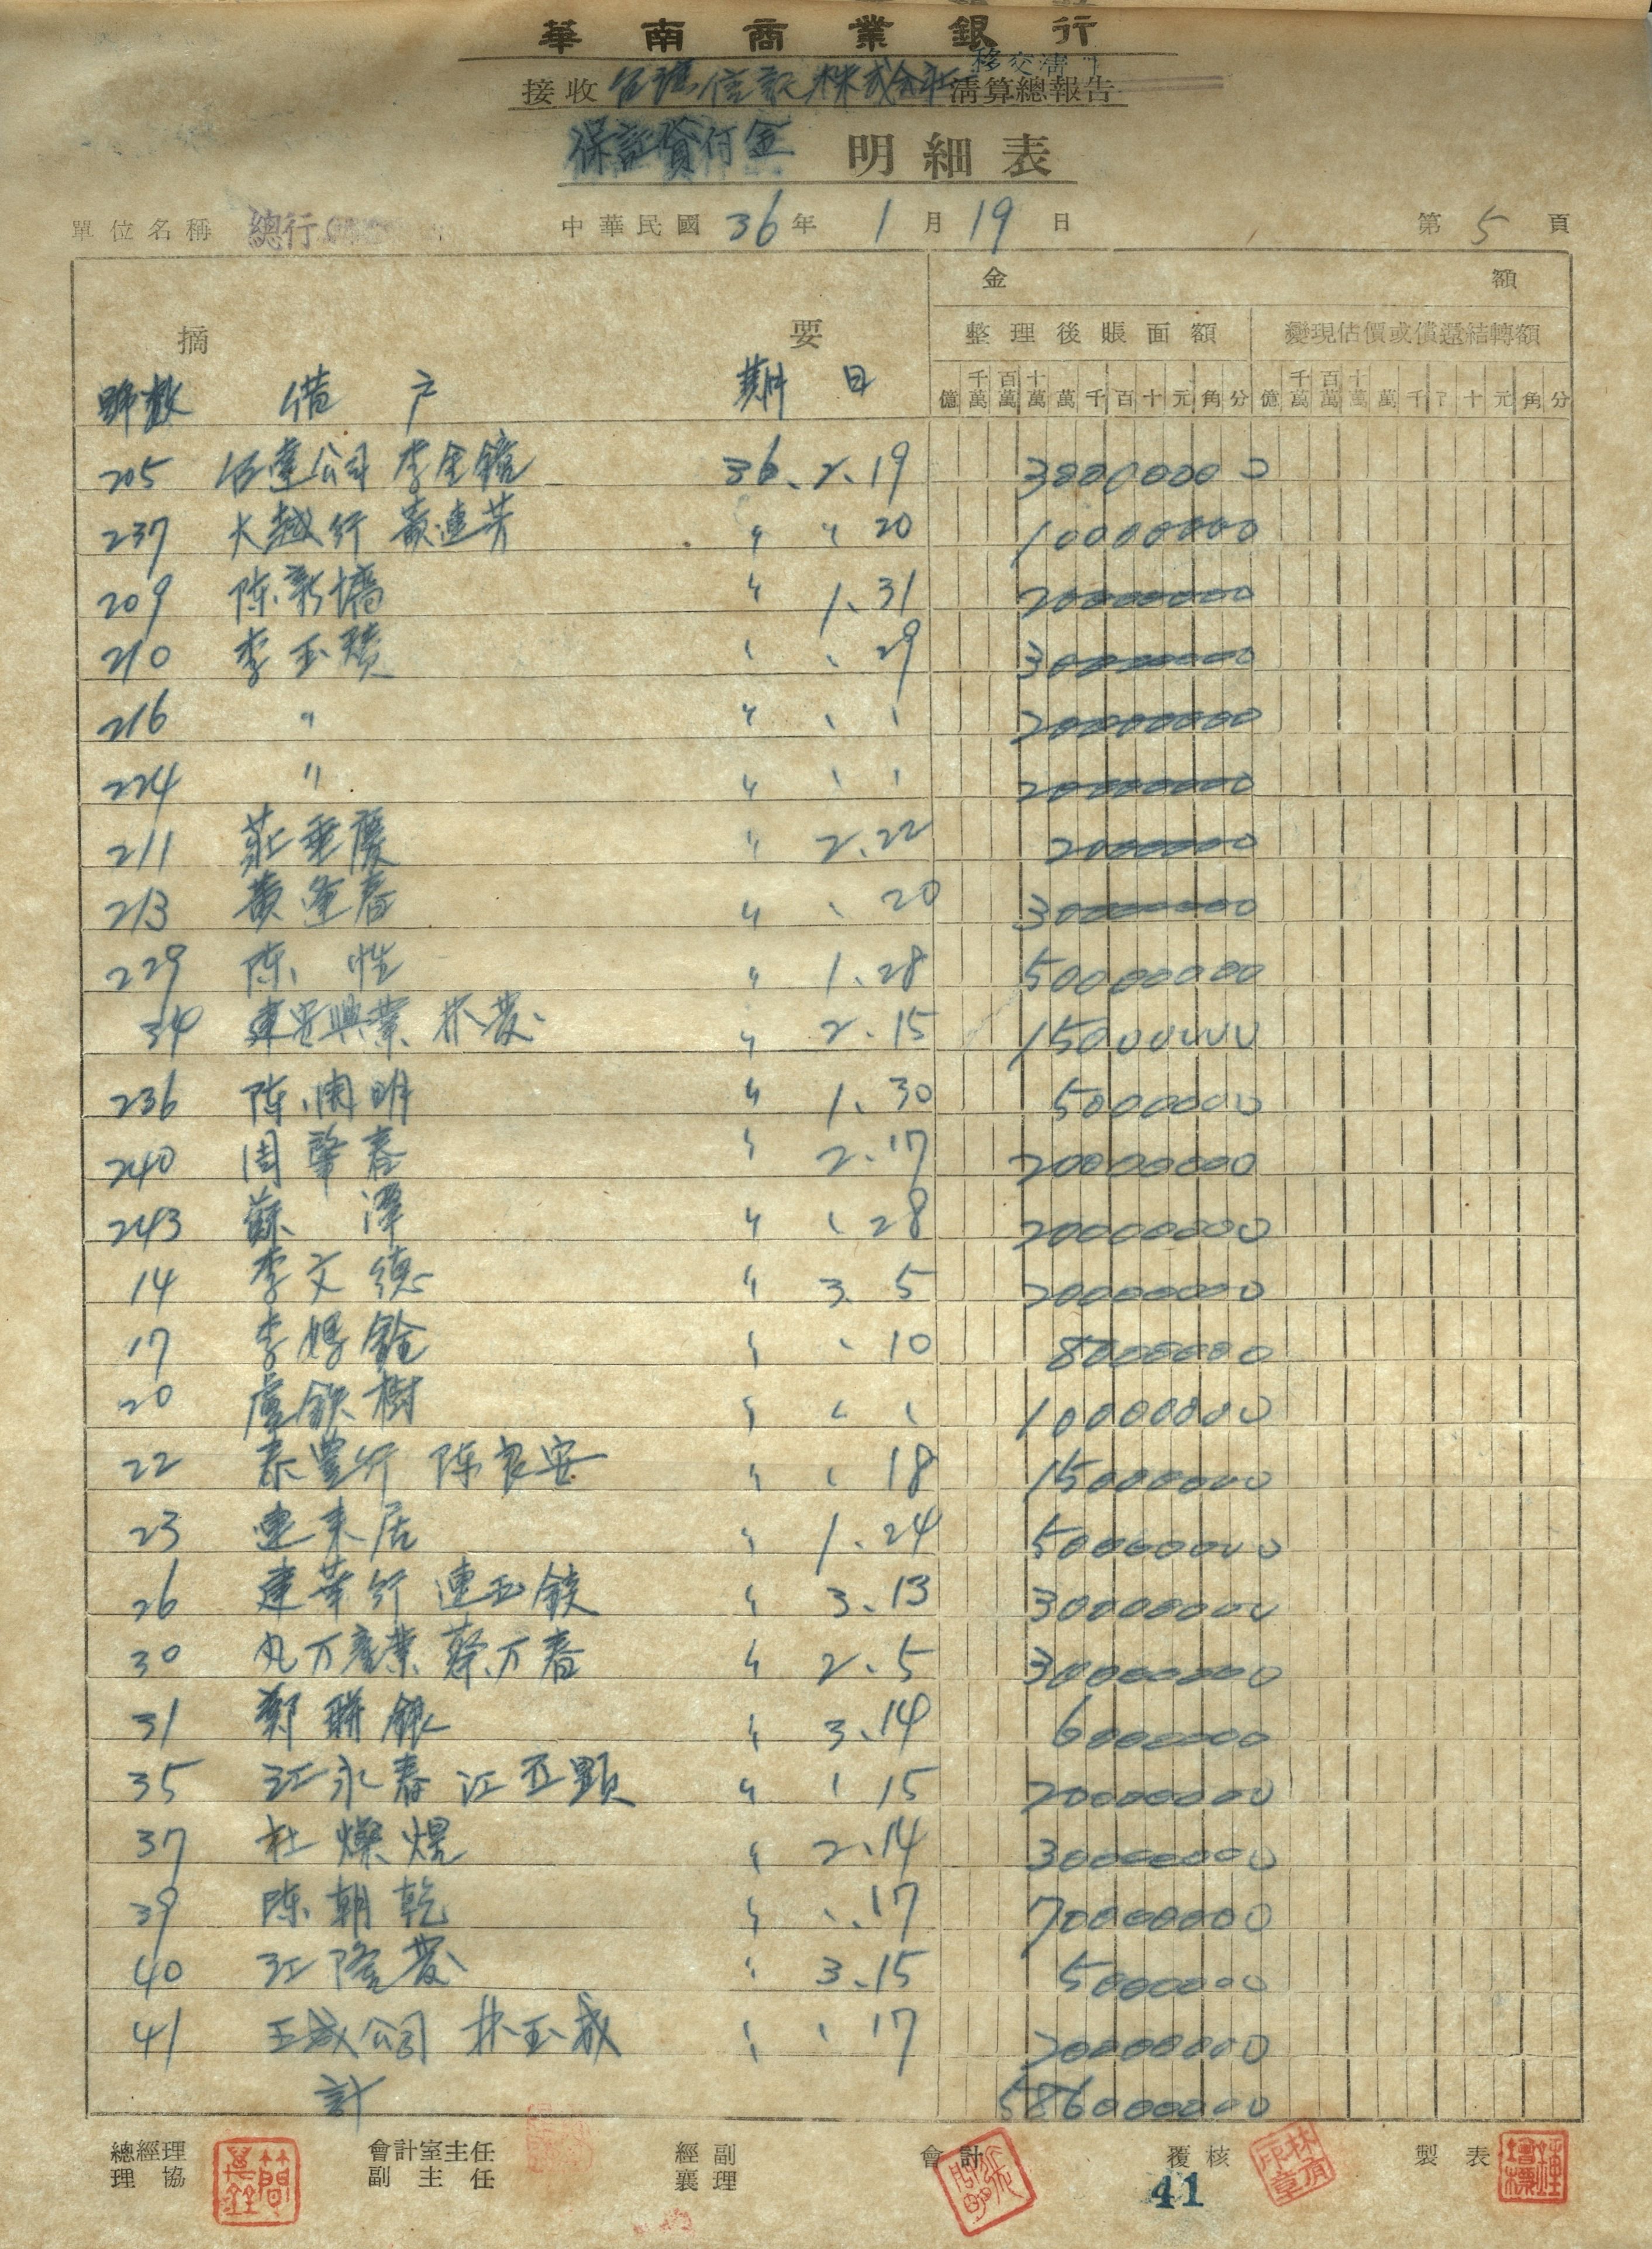 華南商業銀行
移交清
接收 台灣信託株式会社 清算總報告
保証貸付金 明細表
單位名稱 總行 中華民國 36 年 1 月 19 日 第 5 頁
摘要 金額
整理後賬面額 變現估價或償還結轉額
號數 借戶 期日 億 千萬 百萬 十萬 萬 千 百 十 元 角 分 億 千萬 百萬 十萬 萬 千 百 十 元 角 分
205 公司 李金鐘 36、2、19 30000000
237 大越行 黃連芳 〃 〃 20 10000000
209 陈新 〃 1、31 20000000
210 李玉 〃 、 29 30000000
216 〃 〃 、 、 20000000
224 〃 〃 、 、 20000000
211 莊垂慶 〃 2、22 2000000
213 黃逢春 〃 、 20 30000000
229 陈 性 〃 1、28 50000000
34 興業 林 〃 2、15 15000000
236 陈開明 〃 1、30 5000000
240 周肇春 〃 2、17 20000000
243 蘇 澤 〃 、 28 20000000
14 李文德 〃 3、5 20000000
17 李 銓 〃 、 10 8000000
20 盧 樹 〃 、 、 10000000
22 泰豐行 陈良安 〃 、 18 15000000
23 連来居 〃 1、24 50000000
26 建華行 連玉 〃 3、13 30000000
30 丸万產業 蔡万春 〃 2、5 30000000
31 鄭聯銀 〃 3、14 6000000
35 江永春 江亚顕 〃 、 15 20000000
37 杜燦煜 〃 2、14 30000000
39 陈朝乾 〃 、 17 70000000
40 江隆 〃 3、15 5000000
41 玉成公司 林玉成 〃 、 17 20000000
計 586000000
總經理 會計室主任 經副 會計 覆核 製表
理協 副主任 襄理
41